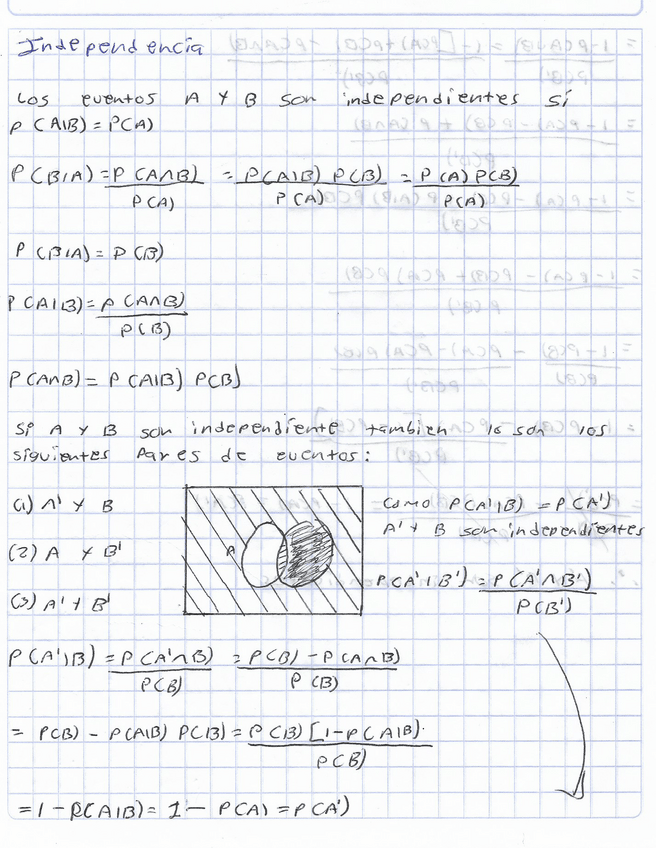 Independencia
Los eventos A y B son independientes si
P(A|B) = P(A)
P(B|A) = P(A∩B) / P(A) = P(A|B) P(B) / P(A) = P(A) P(B) / P(A)
P(B|A) = P(B)
P(A|B) = P(A∩B) / P(B)
P(A∩B) = P(A|B) P(B)
Si A y B son independiente tambien lo son los
siguientes Pares de eventos:
(1) A' y B
(2) A y B'
(3) A' y B'
A
Como P(A'|B) = P(A')
A' y B son independientes
P(A'|B') = P(A'∩B') / P(B')
P(A'|B) = P(A'∩B) / P(B) = P(B) - P(A∩B) / P(B)
= P(B) - P(A|B) P(B) = P(B) [1-P(A|B). / P(B)
= 1 - P(A|B) = 1 - P(A) = P(A')